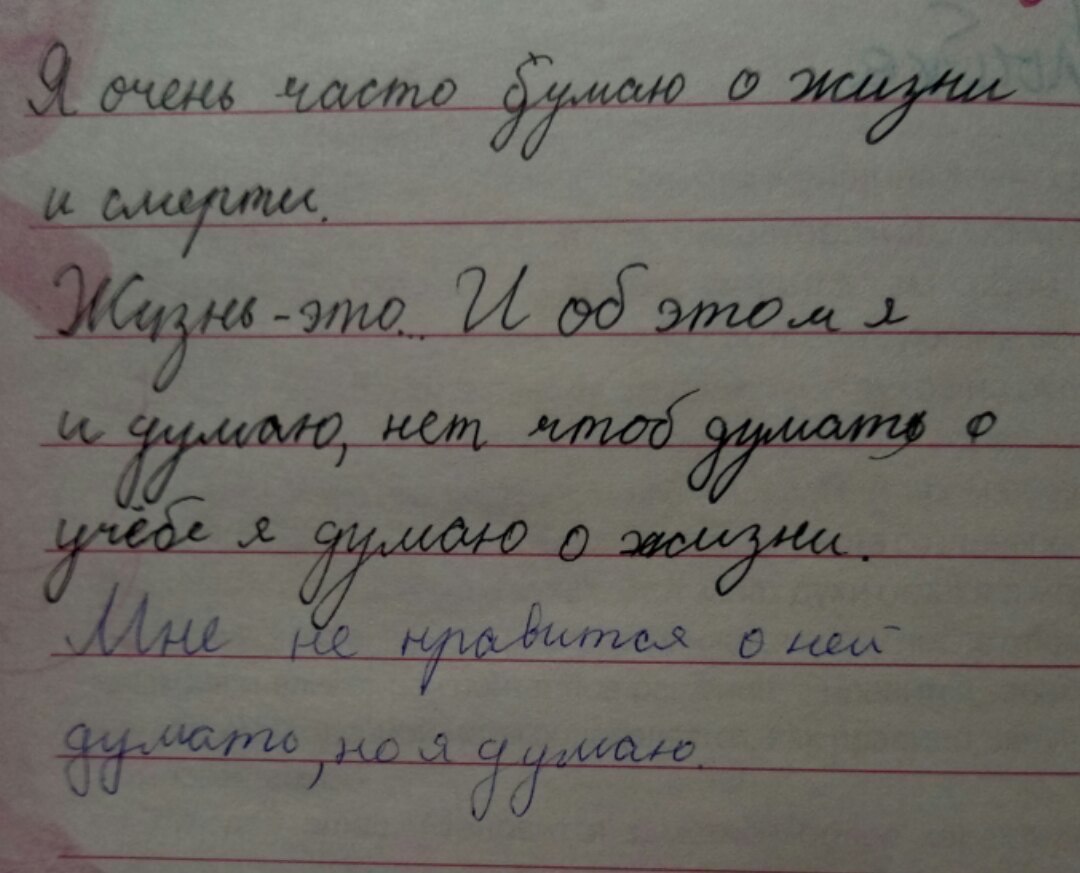 Я очень часто думаю о жизни
и смерти.
Жизнь - это... И об этом я
и думаю, нет чтоб думать о
учёбе я думаю о жизни.
Мне не нравится о ней
думать, но я думаю.